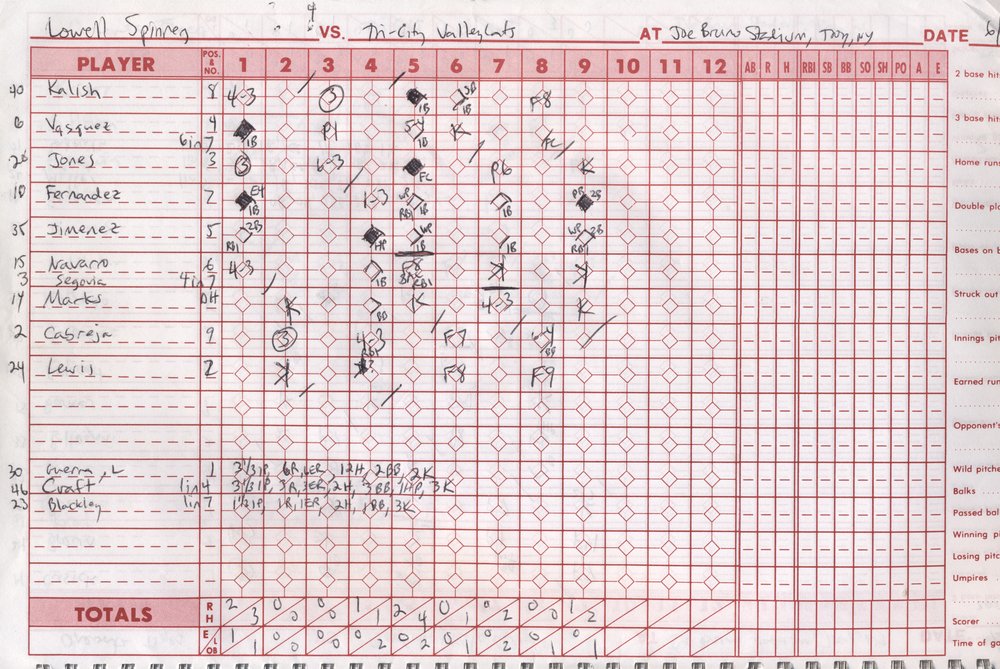 4
Lowell Spinners VS. Tri-City ValleyCats AT Joe Bruno Stadium, Troy, NY DATE 6/
PLAYER POS. & NO. 1 2 3 4 5 6 7 8 9 10 11 12 AB R H RBI SB BB SO SH PO A E
2 base hit
40 Kalish 8 4-3 3 1B SB 1B F8
3 base hit
6 Vasquez 4 1B P1 5-4 1B K FC
6in7
28 Jones 3 3 6-3 FC P6 K
Home runs
10 Fernandez 7 E4 1B 1-3 WP RBI 1B 1B PB 2B
Double pla
35 Jimenez 5 2B RBI HP WP 1B 1B WP 2B RBI
Bases on b
15 Navarro 6 4-3 1B F8 RBI K K
3 Segovia 4in7
Struck out
14 Marks DH K BB K 4-3 K
2 Cabreja 9 3 4-3 RBI F7 6-4 BB
Innings pit
24 Lewis 2 K F8 F9
Earned run
Opponent's
30 Guerra, L 1 3 1/3 IP, 6R, 6ER, 12H, 2BB, 2K
Wild pitche
46 Craft 1in4 3 1/3 IP, 3R, 3ER, 2H, 3BB, 1HP, 3K
Balks
23 Blackley 1in7 1 1/3 IP, 1R, 1ER, 2H, 1BB, 3K
Passed bal
Winning pi
Losing pitc
Umpires
TOTALS R H 2 3 0 0 0 0 1 1 2 4 0 1 0 2 0 0 1 2
Scorer
E LOB 1 1 0 0 0 0 0 2 0 2 0 1 0 2 0 1 0 1
Time of ga